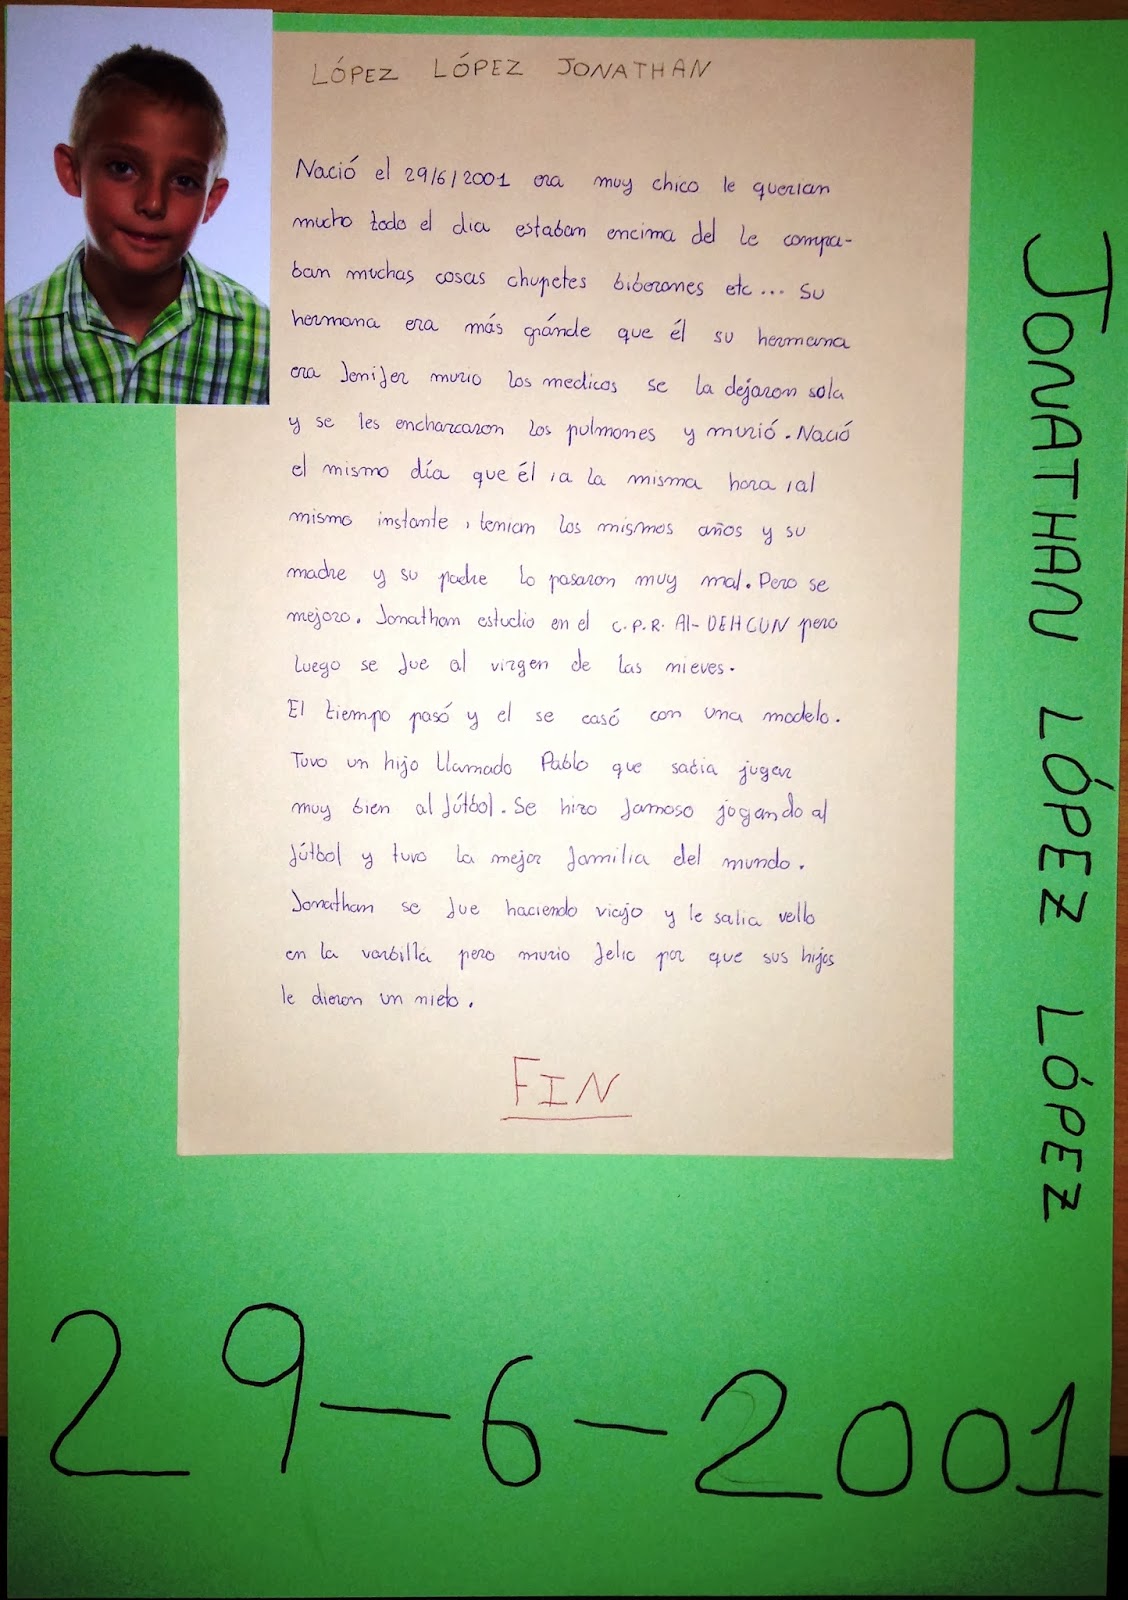 LÓPEZ LÓPEZ JONATHAN
Nació el 29/6/2001 era muy chico le querian
mucho todo el dia estaban encima del le compa-
ban muchas cosas chupetes biberones etc... Su
hermana era más gránde que él su hermana
era Jenifer murio los medicos se la dejaron sola
y se les encharcaron los pulmones y murió. Nació
el mismo día que él, a la misma hora, al
mismo instante, tenian los mismos años y su
madre y su padre lo pasaron muy mal. Pero se
mejoro. Jonathan estudio en el C.P.R. Al-DEHCUN pero
luego se fue al virgen de las nieves.
El tiempo pasó y el se casó con una modelo.
Tuvo un hijo llamado Pablo que sabia jugar
muy bien al fútbol. Se hizo famoso jogando al
fútbol y tuvo la mejor familia del mundo.
Jonathan se fue haciendo viejo y le salia vello
en la varbilla pero murio felic por que sus hijos
le dieron un nieto.
FIN
JONATHAN LÓPEZ LÓPEZ
29-6-2001